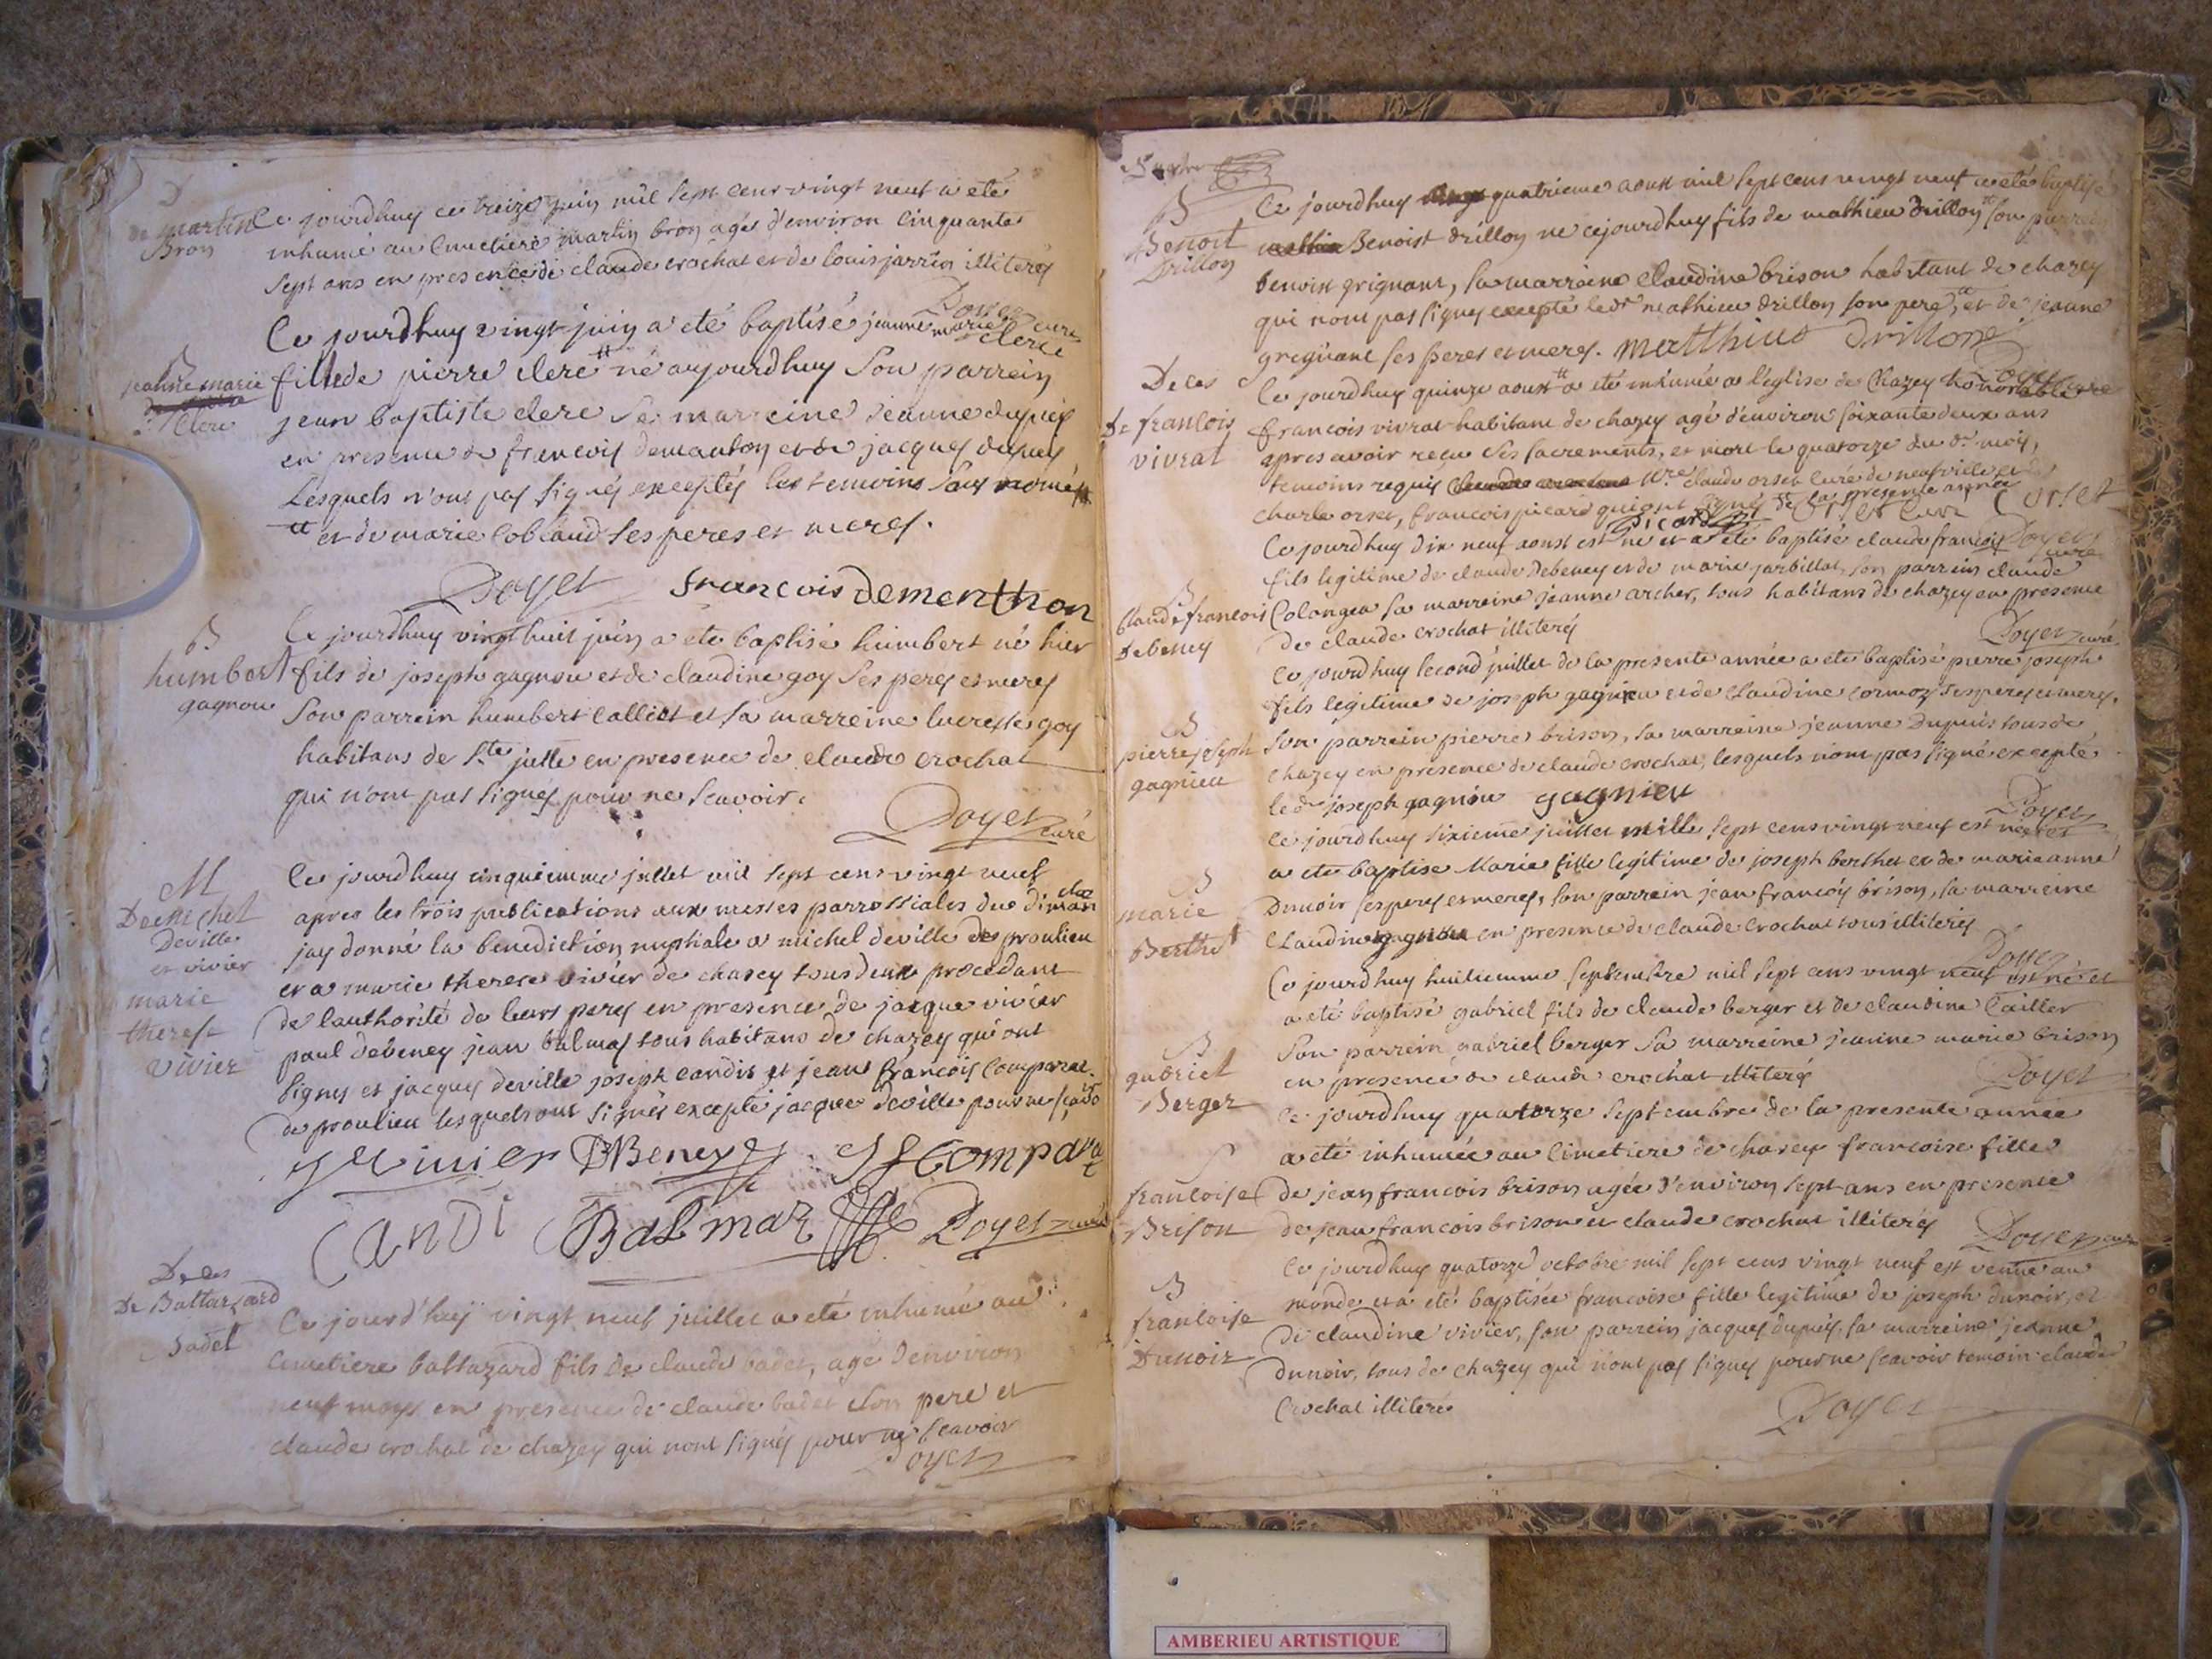 D
de martin
Bron
Ce jourdhuy ce treize juin mil sept cens vingt neuf a eté
inhumé au Cimetiere martin bron agé d'environ Cinquante
sept ans en presence de claude crochat et de louis jarrin illiterés
Doyet curé
B
jeanne marie
Clerc
Ce jourdhuy vingt juin a eté baptisé jeanne marie clerc
fille de pierre clerc # né aujourdhuy Son parrein
jean baptiste clerc Sa marreine jeanne dupuis
en presence de francois demanton et de jacques dupuis
Lesquels n'ont pas signés exceptés les temoins Sous només
# et de marie Cobland ses peres et meres.
Doyet francois Dementhon
B
humbert
gagnou
Ce jourdhuy vingt huit juin a eté baptisé humbert né hier
fils de joseph gagnou et de claudine goy Ses peres et meres
Son parrein humbert Calliet et sa marreine lucresse goy
habitans de Ste julle en presence de claude crochat
qui n'ont pas signés pour ne Scavoir.
Doyet curé
M
De michel
Deville
et vivier
marie
therese
vivier
Ce jourdhuy cinquiemme juillet mil sept cens vingt neuf
apres les trois publications aux messes parrossiales due diman che
jay donné la benediction nuptiale a michel deville de proulieu
et a marie therese vivier de chasey tous deux procedant
de lauthorité de leurs peres en presence de jacque vivier
paul debeney jean balmas tous habitans de chazey qui ont
signés et jacques deville joseph candit et jean francois Comparat
de proulieu lesquels ont signés excepté jacque deville pour ne scavoir
J Vivier DBeney JF Comparat
Candi Balmaz Doyet curé
Deces
De Baltazard
Badet
Ce jourd'huy vingt neuf juillet a eté inhumé au
Cimetiere baltazard fils de claude badet, agé denviron
neuf moys en presence de claude badet son pere et
claude crochat de chazey qui nont signés pour ne scavoir
Doyet
B
Benoit
Drillon
Ce jourdhuy quatrieme aoust mil sept cens vingt neuf a eté baptisé
Benoist drillon né cejourdhuy fils de mathieu Drillon # son parrein
benoist grignant, sa marreine Claudine brison habitant de chazey
qui nont pas signés excepté ledt mathieu drillon son pere, # et de jeanne
gregnant ses peres et meres. Matthius Drillone
Doyet
Deces
De francois
vivrat
Ce jourdhuy quinze aoust # a eté inhumé a l'eglise de Chazey honorable
francois vivrat habitant de chazey agé d'environ soixante deux ans
apres avoir reçu ses sacrements, et mort le quatorze du dt mois,
temoins requis Mre claude orset Curé de neufville et
charle orset, francois picard qui ont signé # de la presente année
Picard Orset Curé C orset
Doyet curé
B
Claude francois
Debeney
Ce jourdhuy dix neuf aoust est né et a eté baptisé claude francois
fils legitime de claude Debeney et de marie jarbillat, son parrein claude
Colongea sa marreine jeanne archer, tous habitans de chazey en presence
de claude crochat illiterés
Doyet curé
B
pierre joseph
gagnieu
Ce jourdhuy second juillet de la presente année a eté baptisé pierre joseph
fils legitime de joseph gagnieu et de claudine cormoz ses peres et meres.
Son parrein pierre brison, sa marreine jeanne dupuis tous de
chazey en presence de claude crochat, lesquels n'ont pas signé excepté
le dt joseph gagniou gagnieu
Doyet
B
marie
Berthet
Ce jourdhuy sixieme juillet mille sept cens vingt neuf est né et
a eté baptisé Marie fille legitime de joseph berthet et de marie anne
Dunoir ses peres et meres, son parrein jean francois brison, sa marreine
Claudine gagniou en presence de claude crochat tous illiterés
Doyet
B
gabriel
Berger
Ce jourdhuy huitiemme septembre mil sept cens vingt neuf est né et
a eté baptisé gabriel fils de claude berger et de claudine Cailler
Son parrein gabriel berger Sa marreine jeanne marie brison
en presence de claude crochat illiteré
Doyet
S
francoise
Brison
Ce jourdhuy quatorze septembre de la presente année
a eté inhumée au Cimetiere de chazey francoise fille
de jean francois brison agée d'environ sept ans en presence
de jean francois brison et claude crochat illiterés
Doyet curé
B
francoise
Dunoir
Ce jourdhuy quatorze octobre mil sept cens vingt neuf est venue au
monde et a eté baptisée francoise fille legitime de joseph dunoir, et
de claudine vivier, son parrein jacques dupuis, sa marreine jeanne
dunoir, tous de chazey qui n'ont pas signés pour ne scavoir temoin claude
Crochat illiteré
Doyet
AMBERIEU ARTISTIQUE